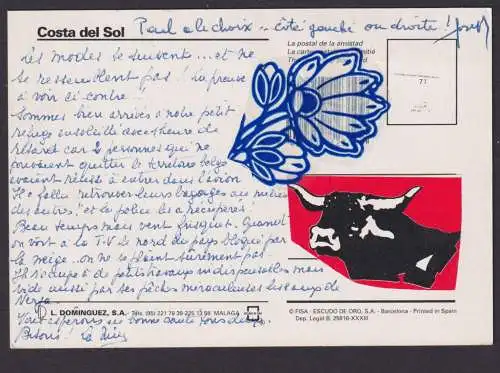 Costa del Sol
Paul a le choix - côté gauche ou droite ! Joseph
La postal de la amistad
La carte
Th
71
Les modes se suivent ... et ne
se ressemblent pas ! La preuve
à voir ci contre !
Sommes bien arrivés à notre petit
avec 1 heure de
retard car 2 personnes qui ne
pouvaient quitter le territoire belge
avaient réussi à entrer dans l'avion
Il a fallu retrouver leurs bagages au milieu
des autres ! et la police les a récupérés !
Beau temps mais vent frisquet. Quand
on voit à la T.V. le nord du pays bloqué par
la neige .. on ne se plaint sûrement pas
J
mais
vide aussi par ses pêches miraculeuses les eaux de
Nerja
Vous espérons en bonne santé tous deux
Bisous !
L. DOMINGUEZ, S.A. Tels. (95) 221 79 39 - 225 13 98 MALAGA
© FISA - ESCUDO DE ORO, S.A. - Barcelona - Printed in Spain
Dep. Legal B. 29816-XXXIII